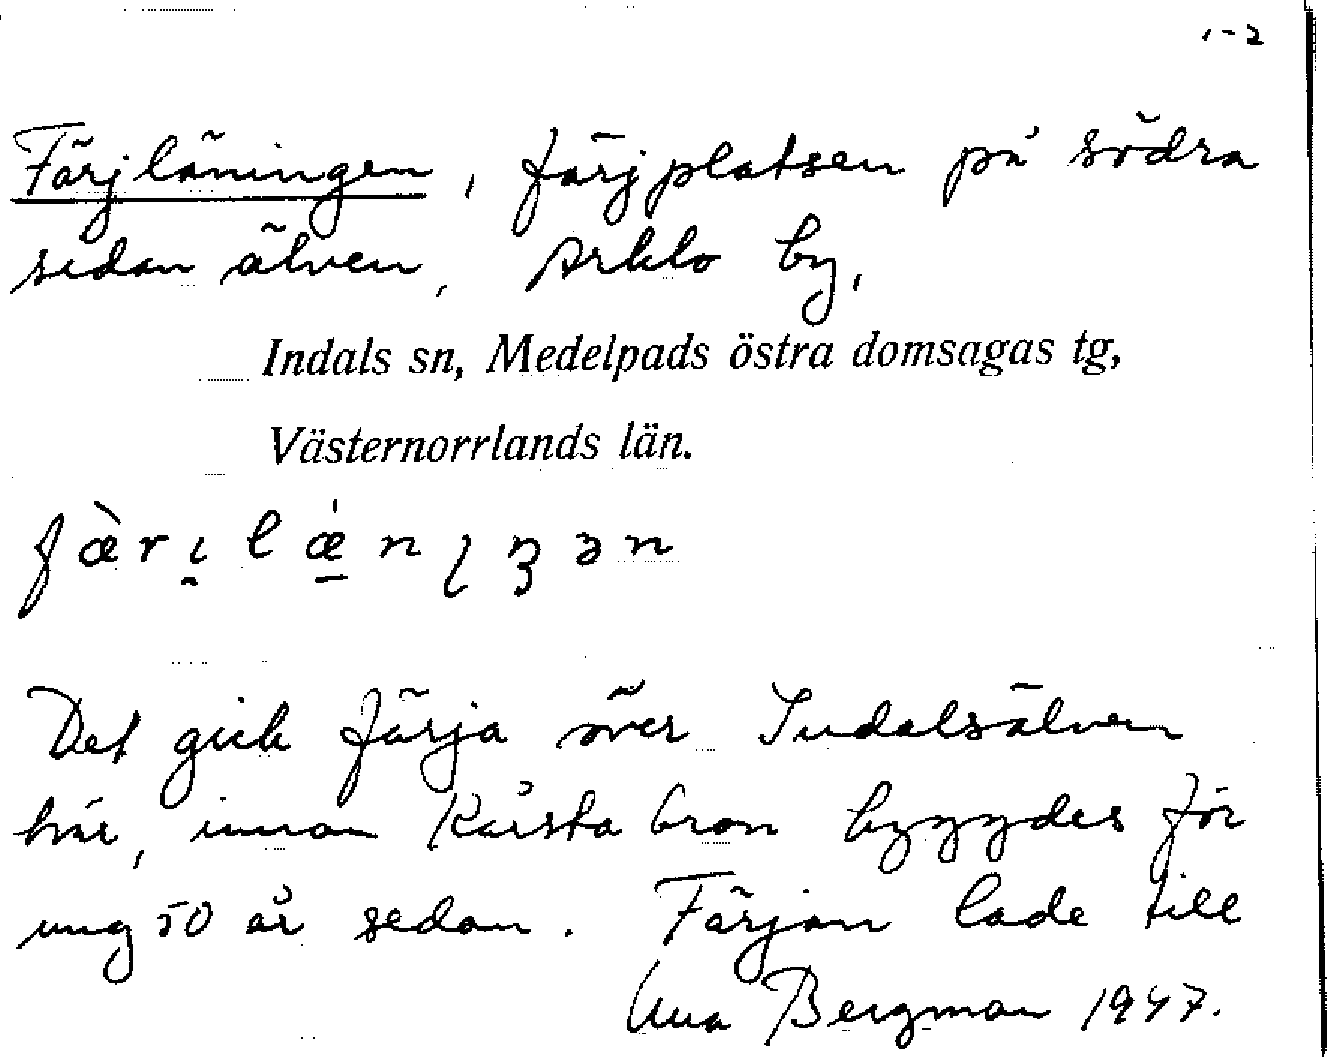 1-2
Färjläningen, färjplatsen på södra
sidan älven, Arklo by,
Indals sn, Medelpads östra domsagas tg,
Västernorrlands län.
Det gick färja över Indalsälven
här, innan Kårsta bron byggdes för
ung 50 år sedan. Färjan lade till
Bergman 1947.